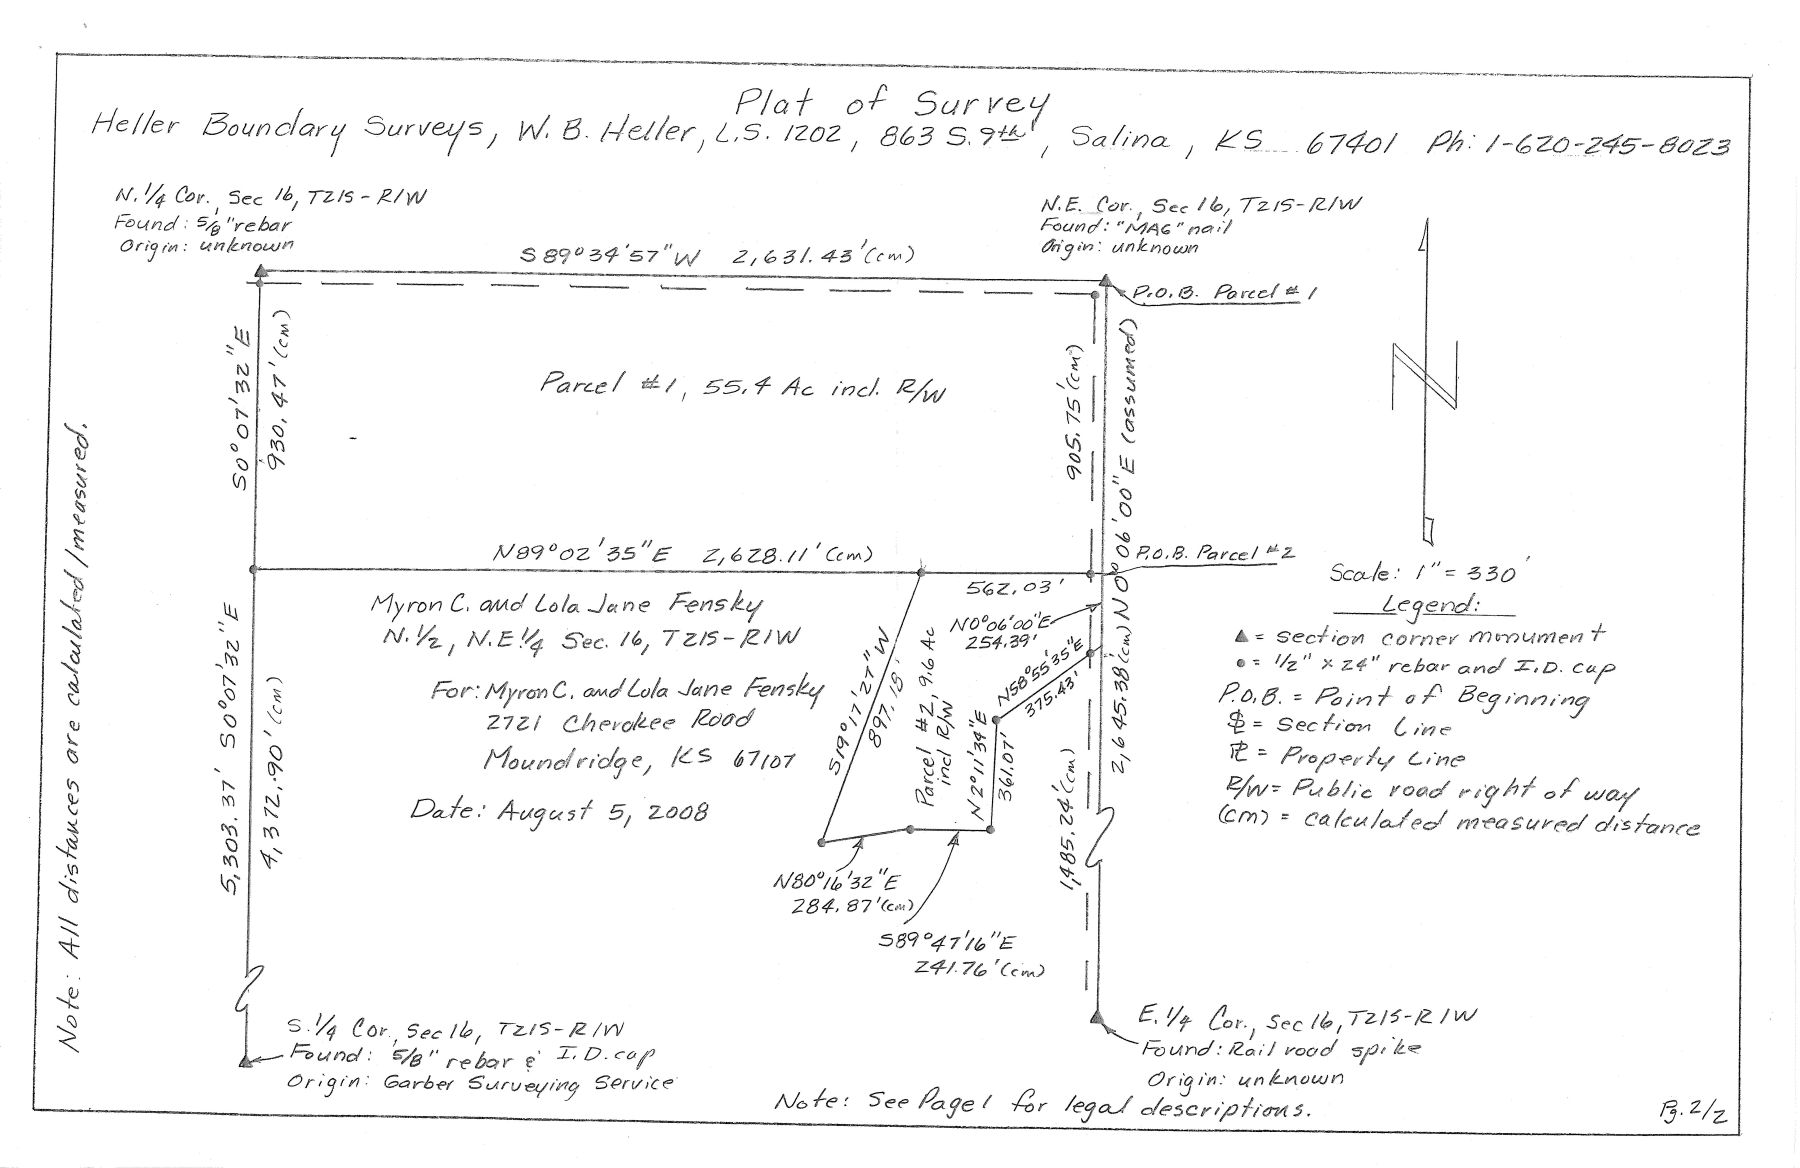 Plat of Survey
Heller Boundary Surveys, W. B. Heller, L.S. 1202, 863 S. 9th, Salina, KS 67401 Ph: 1-620-245-8023
N. 1/4 Cor., Sec 16, T21S-R1W
Found: 5/8" rebar
Origin: unknown
N.E. Cor., Sec 16, T21S-R1W
Found: "MAG" nail
Origin: unknown
S89°34'57"W 2,631.43'(cm)
P.O.B. Parcel #1
S0°07'32"E
930.47'(cm)
Parcel #1, 55.4 Ac incl. R/W
905.75'(cm)
N0°06'00"E (assumed)
2,645.38'(cm)
N89°02'35"E 2,628.11'(cm)
P.O.B. Parcel #2
562.03'
Myron C. and Lola Jane Fensky
N. 1/2, N.E. 1/4 Sec. 16, T21S-R1W
For: Myron C. and Lola Jane Fensky
2721 Cherokee Road
Moundridge, KS 67107
Date: August 5, 2008
S0°07'32"E
5,303.37'
4,372.90'(cm)
S19°17'27"W
897.18'
Parcel #2, 9.6 Ac
incl R/W
N0°06'00"E
254.39'
N58°55'35"E
375.43'
N2°11'34"E
361.07'
1,485.24'(cm)
N80°16'32"E
284.87'(cm)
S89°47'16"E
241.76'(cm)
Scale: 1" = 330'
Legend:
▲ = section corner monument
● = 1/2" x 24" rebar and I.D. cap
P.O.B. = Point of Beginning
SL = Section Line
PL = Property Line
R/W = Public road right of way
(cm) = calculated measured distance
S. 1/4 Cor., Sec 16, T21S-R1W
Found: 5/8" rebar & I.D. cap
Origin: Garber Surveying Service
E. 1/4 Cor., Sec 16, T21S-R1W
Found: Rail road spike
Origin: unknown
Note: All distances are calculated/measured.
Note: See Page 1 for legal descriptions.
Pg. 2/2